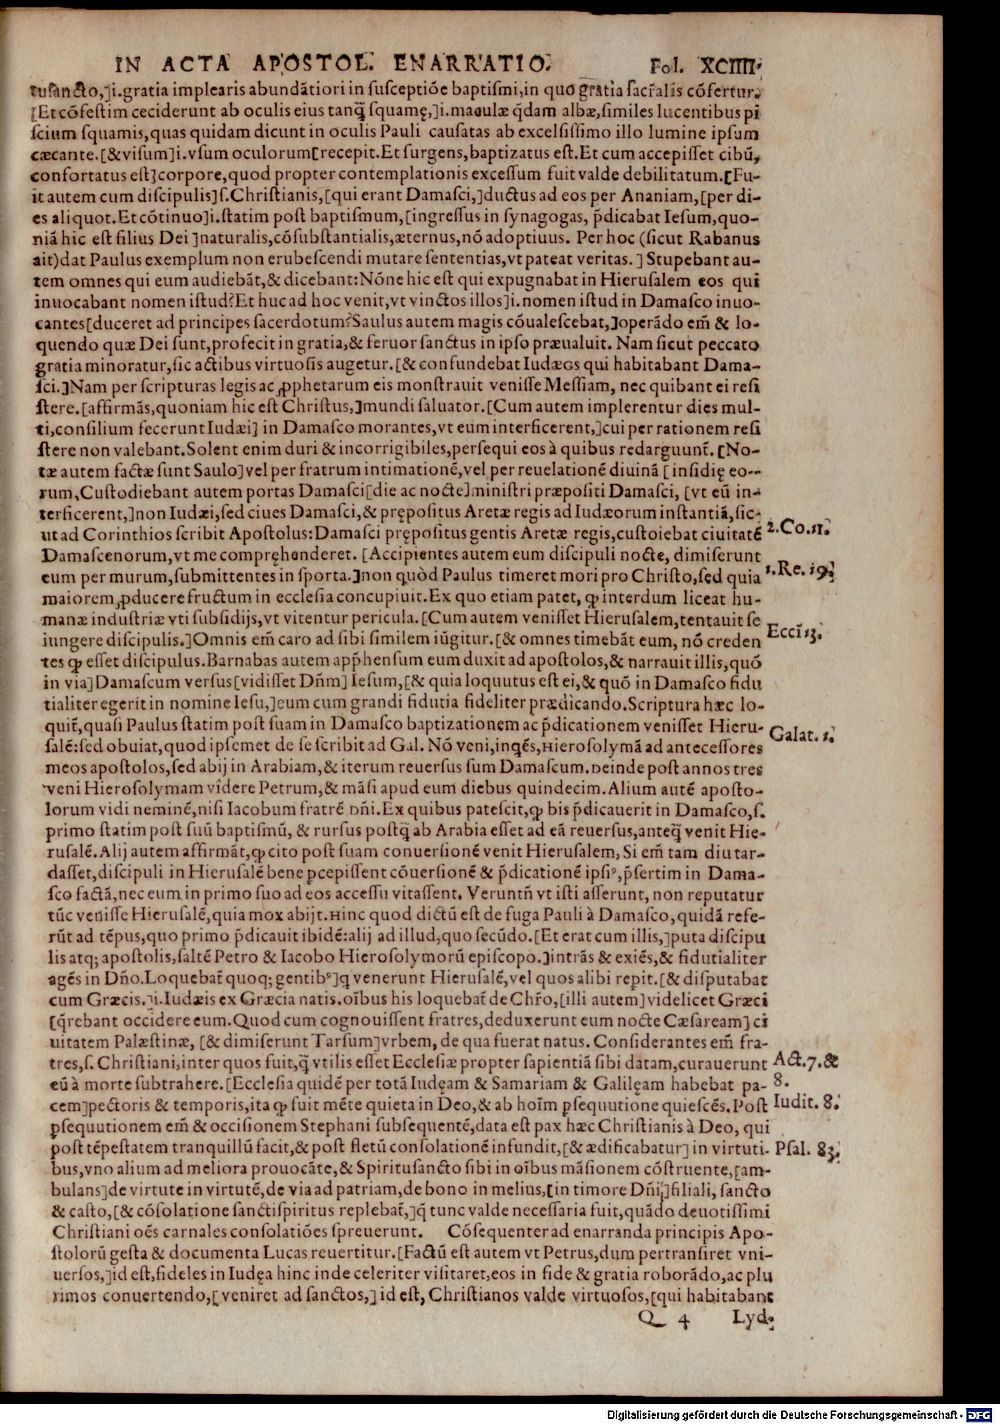 IN ACTA APOSTOL. ENARRATIO. Fol. XCIIII.
tusancto,]i. gratia implearis abundãtiori in susceptiõe baptismi, in quo gratia sacr̃alis cõfertur.
[Et cõfestim ceciderunt ab oculis eius tanq̃ squamę,]i. maculæ q̃dam albæ, similes lucentibus pi
scium squamis, quas quidam dicunt in oculis Pauli causatas ab excelsissimo illo lumine ipsum
cæcante. [& visum]i. vsum oculorum[recepit. Et surgens, baptizatus est. Et cum accepisset cibũ,
confortatus est]corpore, quod propter contemplationis excessum fuit valde debilitatum. [Fu-
it autem cum discipulis]s. Christianis, [qui erant Damasci,]ductus ad eos per Ananiam, [per di-
es aliquot. Et cõtinuo]i. statim post baptismum, [ingressus in synagogas, p̃dicabat Iesum, quo-
niã hic est filius Dei ]naturalis, cõsubstantialis, æternus, nõ adoptiuus. Per hoc (sicut Rabanus
ait) dat Paulus exemplum non erubescendi mutare sententias, vt pateat veritas. ] Stupebant au-
tem omnes qui eum audiebãt, & dicebant: Nõne hic est qui expugnabat in Hierusalem eos qui
inuocabant nomen istud? Et huc ad hoc venit, vt vinctos illos]i. nomen istud in Damasco inuo-
cantes[duceret ad principes sacerdotum? Saulus autem magis cõualescebat,]operãdo em̃ & lo-
quendo quæ Dei sunt, profecit in gratia, & feruor sanctus in ipso præualuit. Nam sicut peccato
gratia minoratur, sic actibus virtuosis augetur. [& confundebat Iudæos qui habitabant Dama-
sci.]Nam per scripturas legis ac ꝓphetarum eis monstrauit venisse Messiam, nec quibant ei resi
stere. [affirmãs, quoniam hic est Christus,]mundi saluator. [Cum autem implerentur dies mul-
ti, consilium fecerunt Iudæi] in Damasco morantes, vt eum interficerent,]cui per rationem resi
stere non valebant. Solent enim duri & incorrigibiles, persequi eos à quibus redarguunt̃. [No-
tæ autem factæ sunt Saulo]vel per fratrum intimationẽ, vel per reuelationẽ diuinã [insidię eo-
rum, Custodiebant autem portas Damasci[die ac nocte]ministri præpositi Damasci, [vt eũ in-
terficerent,]non Iudæi, sed ciues Damasci, & prępositus Aretæ regis ad Iudæorum instantiã, sic-
ut ad Corinthios scribit Apostolus: Damasci prępositus gentis Aretæ regis, custoiebat ciuitatẽ
Damascenorum, vt me compręhenderet. [Accipientes autem eum discipuli nocte, dimiserunt
eum per murum, submittentes in sporta.]non quòd Paulus timeret mori pro Christo, sed quia
maiorem ꝓducere fructum in ecclesia concupiuit. Ex quo etiam patet, ꝙ interdum liceat hu-
manæ industriæ vti subsidijs, vt vitentur pericula. [Cum autem venisset Hierusalem, tentauit se
iungere discipulis.]Omnis em̃ caro ad sibi similem iũgitur. [& omnes timebãt eum, nõ creden
tes ꝙ esset discipulus. Barnabas autem app̃hensum eum duxit ad apostolos, & narrauit illis, quõ
in via] Damascum versus[vidisset Dñm] Iesum, [& quia loquutus est ei, & quõ in Damasco fidu
tialiter egerit in nomine Iesu,]cum cum grandi fidutia fideliter prædicando. Scriptura hæc lo-
quit̃, quasi Paulus statim post suam in Damasco baptizationem ac p̃dicationem venisset Hieru-
salẽ: sed obuiat, quod ipsemet de se scribit ad Gal. Nõ veni, inq̃ẽs, Hierosolymã ad antecessores
meos apostolos, sed abij in Arabiam, & iterum reuersus sum Damascum. Deinde post annos tres
veni Hierosolymam vîdere Petrum, & mãsi apud eum diebus quindecim. Alium autẽ aposto-
lorum vidi neminẽ, nisi Iacobum fratrẽ Dñi. Ex quibus patescit, ꝙ bis p̃dicauerit in Damasco, s.
primo statim post suũ baptismũ, & rursus postq̃ ab Arabia esset ad eã reuersus, anteq̃ venit Hie-
rusalẽ. Alij autem affirmãt, ꝙ cito post suam conuersionẽ venit Hierusalem, Si em̃ tam diu tar-
dasset, discipuli in Hierusalẽ bene ꝑcepissent cõuersionẽ & p̃dicationẽ ipsiꝰ, p̃sertim in Dama-
sco factã, nec eum in primo suo ad eos accessu vitassent. Veruntñ vt isti asserunt, non reputatur
tũc venisse Hierusalẽ, quia mox abijt. Hinc quod dictũ est de fuga Pauli à Damasco, quidã refe-
rũt ad tẽpus, quo primo p̃dicauit ibidẽ: alij ad illud, quo secũdo. [Et erat cum illis,]puta discipu
lis atq; apostolis, saltẽ Petro & Iacobo Hierosolymorũ episcopo.]intrãs & exiẽs, & fidutialiter
agẽs in Dño. Loquebat̃ quoq; gentibꝰ]q̃ venerunt Hierusalẽ, vel quos alibi repit. [& disputabat
cum Græcis.]i. Iudæis ex Græcia natis. oĩbus his loquebat̃ de Chr̃o, [illi autem]videlicet Græci
[q̃rebant occidere eum. Quod cum cognouissent fratres, deduxerunt eum nocte Cæsaream] ci
uitatem Palæstinæ, [& dimiserunt Tarsum]vrbem, de qua fuerat natus. Considerantes em̃ fra-
tres, s. Christiani, inter quos fuit, q̃ vtilis esset Ecclesiæ propter sapientiã sibi datam, curauerunt
eũ à morte subtrahere. [Ecclesia quidẽ per totã Iudęam & Samariam & Galilęam habebat pa-
cem]pectoris & temporis, ita ꝙ fuit mẽte quieta in Deo, & ab hoĩm ꝑsequutione quiescẽs. Post
ꝑsequutionem em̃ & occisionem Stephani subsequentẽ, data est pax hæc Christianis à Deo, qui
post tẽpestatem tranquillũ facit, & post fletũ consolationẽ infundit, [& ædificabatur] in virtuti-
bus, vno alium ad meliora prouocãte, & Spiritusancto sibi in oĩbus mãsionem cõstruente, [am-
bulans]de virtute in virtutẽ, de via ad patriam, de bono in melius, [in timore Dñi]filiali, sancto
& casto, [& cõsolatione sanctispiritus replebat̃,]q̃ tunc valde necessaria fuit, quãdo deuotissimi
Christiani oẽs carnales consolatiões spreuerunt. Cõsequenter ad enarranda principis Apo-
stolorũ gesta & documenta Lucas reuertitur. [Factũ est autem vt Petrus, dum pertransiret vni-
uersos,]id est, fideles in Iudęa hinc inde celeriter visitaret, eos in fide & gratia roborãdo, ac plu
rimos conuertendo, [veniret ad sanctos,] id est, Christianos valde virtuosos, [qui habitabant
Q 4 Lyd-
2.Co.11.
1.Re.19.
Eccl 13.
Galat.1.
Act.7.&
8.
Iudit.8.
Psal. 83.
Digitalisierung gefördert durch die Deutsche Forschungsgemeinschaft - DFG